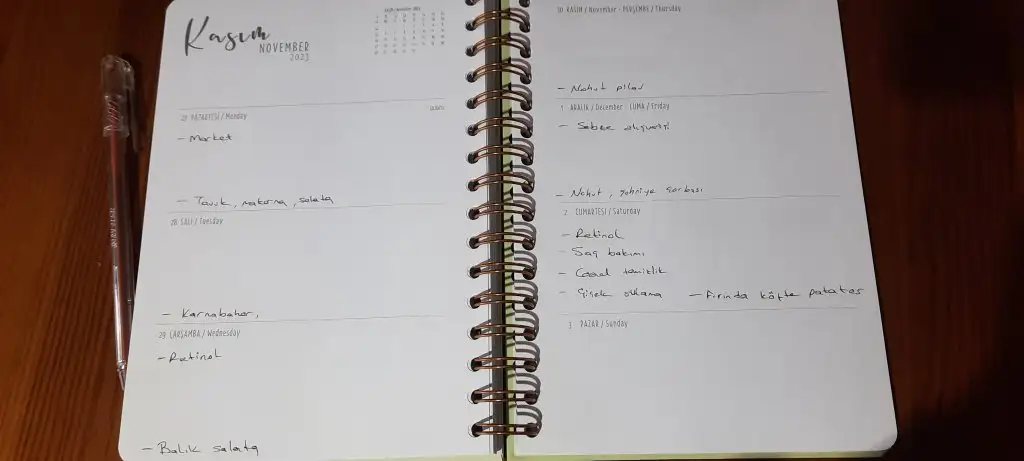 Kasım
NOVEMBER
2023
27 PAZARTESİ / Monday
- Market
- Tavuk, makarna, salata
28 SALI / Tuesday
- Karnabahar,
29 ÇARŞAMBA / Wednesday
- Retinol
- Balık salata
30 KASIM / November - PERŞEMBE / Thursday
- Nohut pilav
1 ARALIK / December - CUMA / Friday
- Sebze alışverişi
- Nohut, şehriye çorbası
2 CUMARTESİ / Saturday
- Retinol
- Saç bakımı
- Genel temizlik
- Çiçek sulama - Fırında köfte patates
3 PAZAR / Sunday